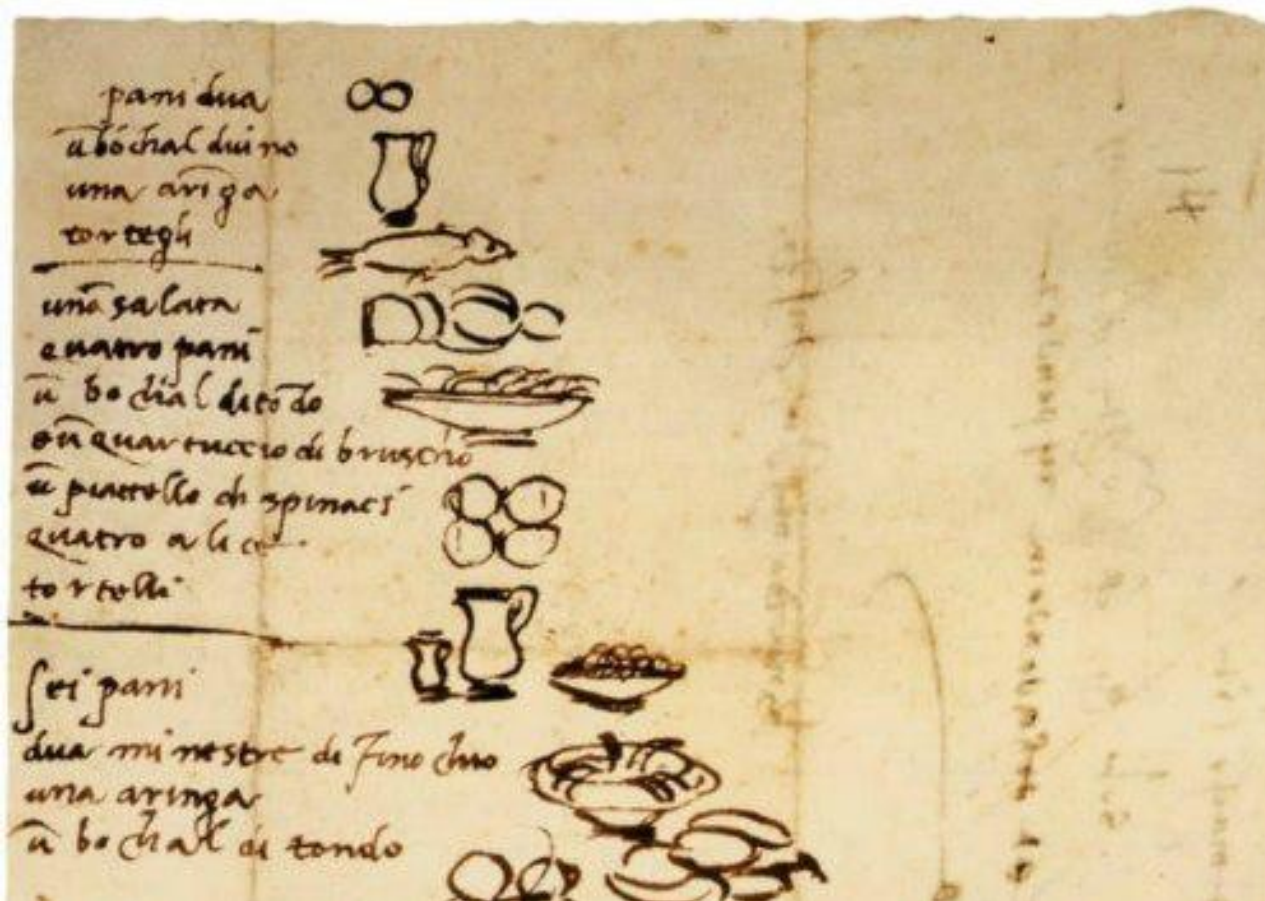 pani dua
ū bochal di vino
una aringa
tortegli
una salata
quatro pani
ū bochal di tōdo
e ū quartuccio di bruscho
ū piattello di spinaci
quatro alice
tortelli
sei pani
dua minestre di finochio
una aringa
ū bochal di tondo
14